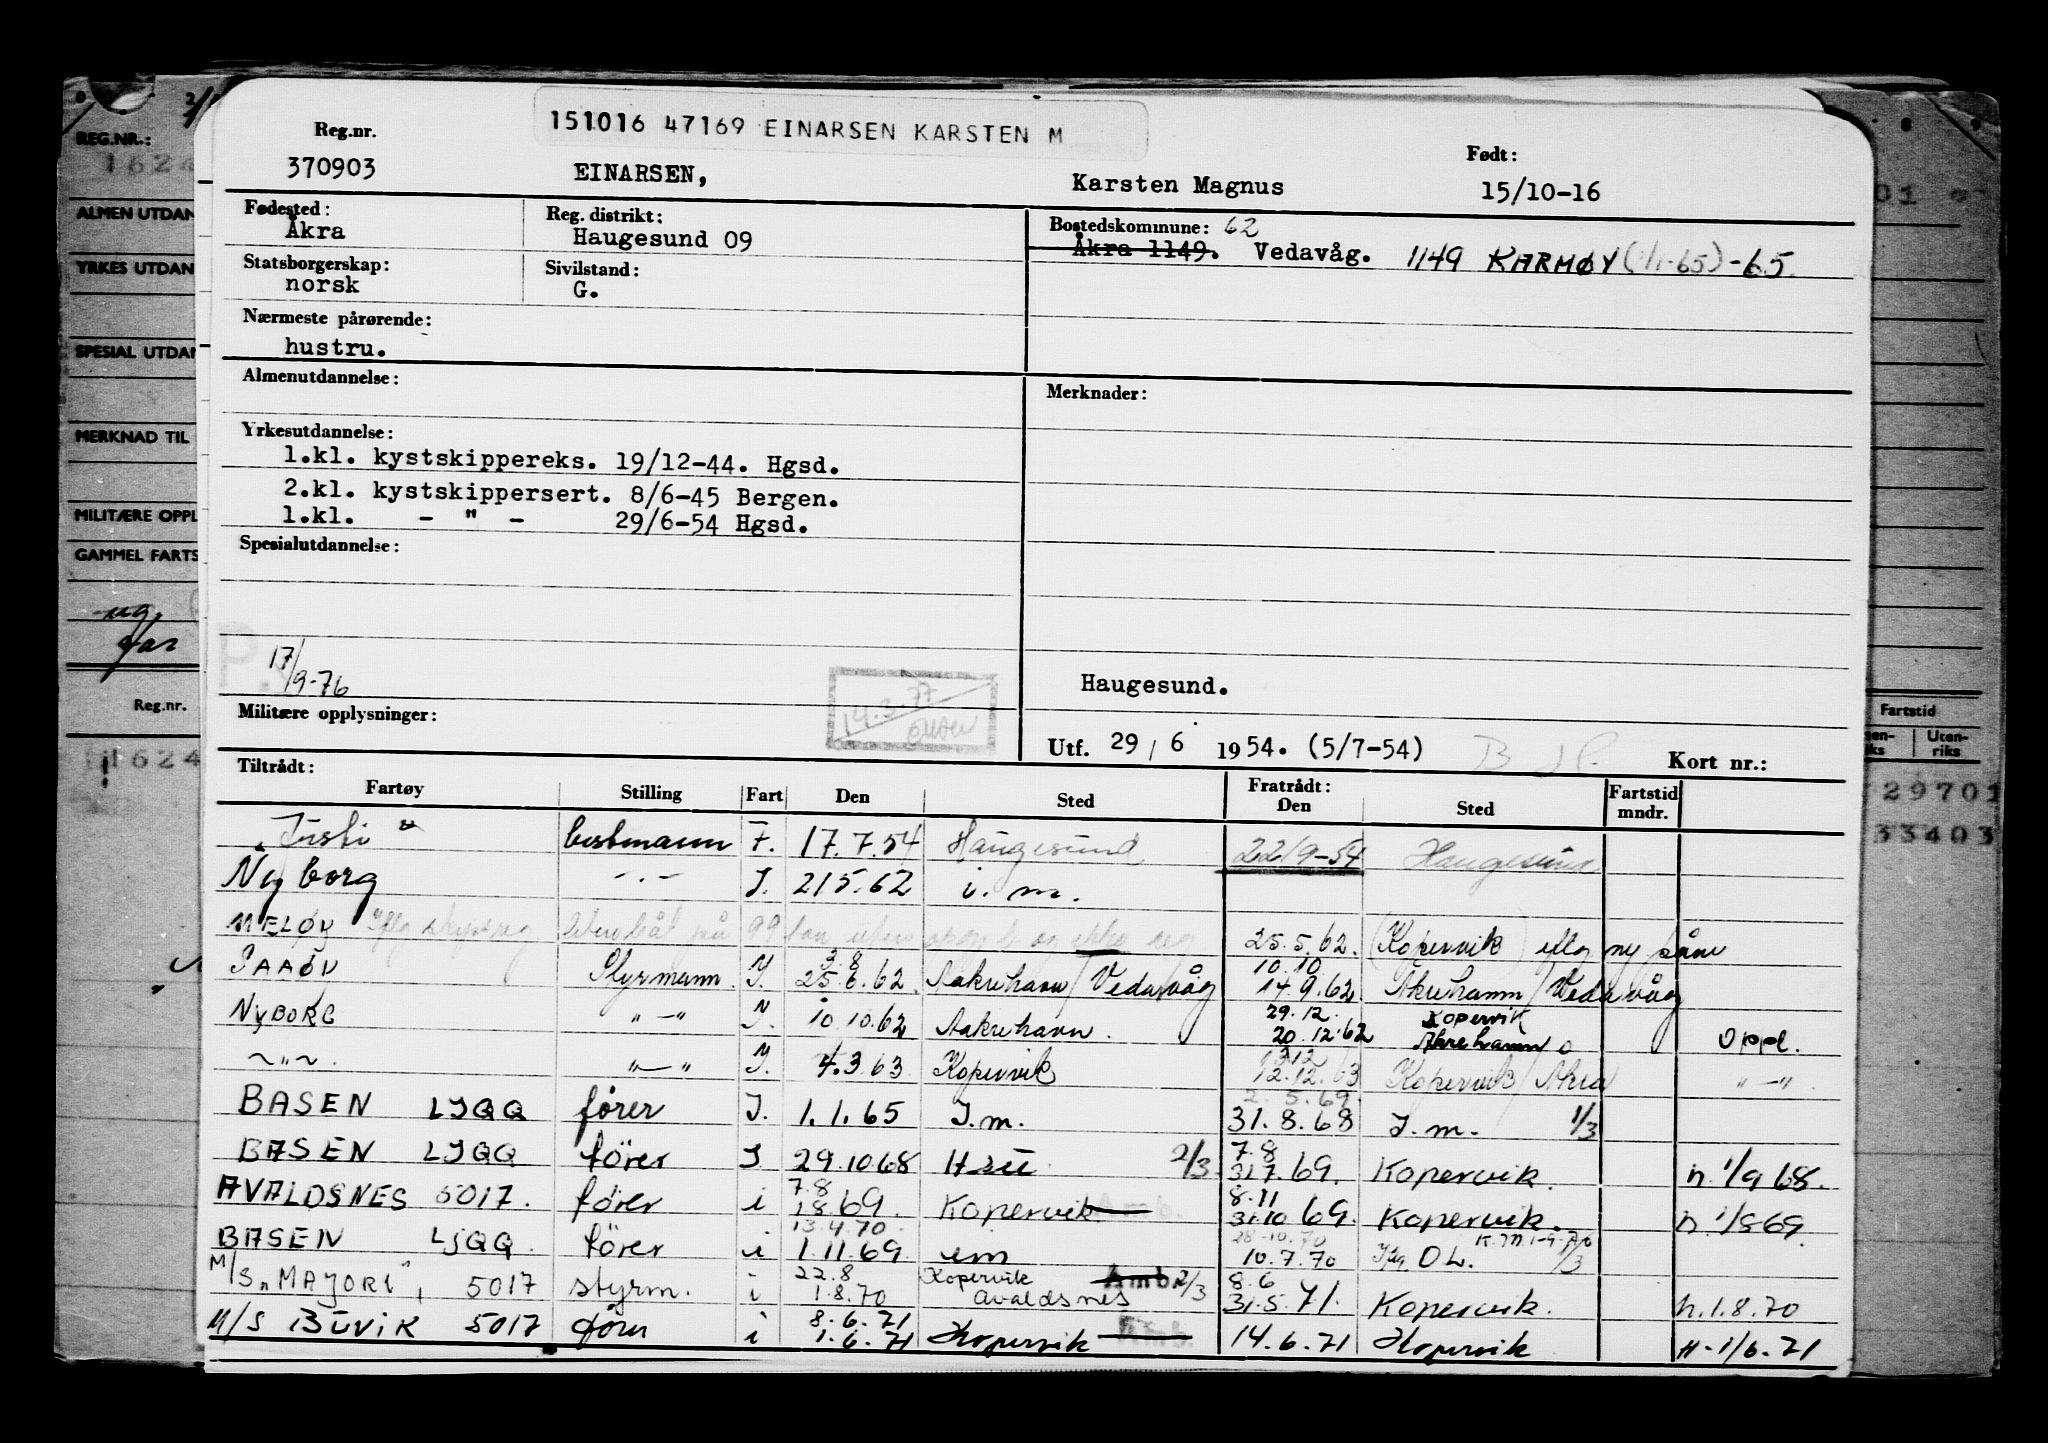 151016 47169 EINARSEN KARSTEN M
Reg.nr.
370903
EINARSEN,
Karsten Magnus
Født:
15/10-16
Fødested:
Åkra
Reg. distrikt:
Haugesund 09
Bostedskommune: 62
Åkra 1149. Vedavåg. 1149 KARMØY (1/1-65) -65.
Statsborgerskap:
norsk
Sivilstand:
G.
Nærmeste pårørende:
hustru.
Almenutdannelse:
Merknader:
Yrkesutdannelse:
1.kl. kystskippereks. 19/12-44. Hgsd.
2.kl. kystskippersert. 8/6-45 Bergen.
1.kl. - " - 29/6-54 Hgsd.
Spesialutdannelse:
17/9-76
14.3.77
Haugesund.
Militære opplysninger:
Utf. 29/6 1954. (5/7-54)
Kort nr.:
Tiltrådt:
Fartøy Stilling Fart Den Sted Fratrådt: Den Sted Fartstid mndr.
bestmann F. 17.7.54 Haugesund 22/9-54 Haugesund
Nyborg -.- I. 21.5.62 i.m.
MELØY 25.5.62. (Kopervik)
Styrmann I. 3.8 25.6.62. Aakrehavn/Vedavåg 10.10 14.9.62. Åkrehamn/Vedavåg
NYBORG " - " I. 10.10.62 Aakrehavn. 29.12. 20.12.62 Kopervik Åkrehamn Oppl.
~"~. " - " I. 4.3.63 Kopervik 12.12.63 Kopervik/Åkra " - "
BASEN LJQQ fører I. 1.1.65 I.m. 2.5.69. 31.8.68 I.m. 1/3
BASEN LJQQ fører I 29.10.68 2/3 7.8 31.7.69. Kopervik. n. 1/9 68.
AVALDSNES 5017. fører i 7.8 1.8.69. Kopervik 8.11 31.10 69. Kopervik. n. 1/8 69.
BASEN LJQQ. fører i 13.4.70 1.11.69. um 28.10.70 10.7.70 OL. 1/3
M/S "MAJORI" 5017 styrm. i 22.8 1.8.70 Kopervik Avaldsnes Amb. 2/3 8.6 31.5.71. Kopervik. n.1.8.70
M/S BUVIK 5017 fører i 8.6.71 1.6.71 Kopervik 14.6.71 Kopervik n-1/6.71
REG.NR.:
1624
ALMEN UTDAN
YRKES UTDAN
SPESIAL UTDAN
MERKNAD TIL
MILITÆRE OPPL
GAMMEL FARTS
Reg.nr.
1624
01
Fartstid
Uten-
riks
29701
33403